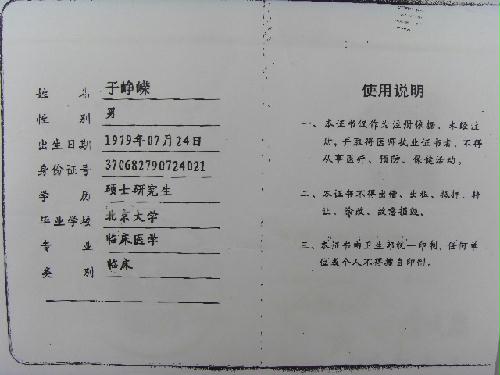 姓 名 于峥嵘
性 别 男
出生日期 1979年07月24日
身份证号 370682790724021
学 历 硕士研究生
毕业学校 北京大学
专 业 临床医学
类 别 临床
使用说明
一、本证书仅作为注册依据，未经过
注册取得医师执业证书者，不得
从事医疗、预防、保健活动。
二、本证书不得出借、出租、抵押、转
让、涂改、故意损毁。
三、本证书由卫生部统一印制，任何单
位或个人不得擅自印制。